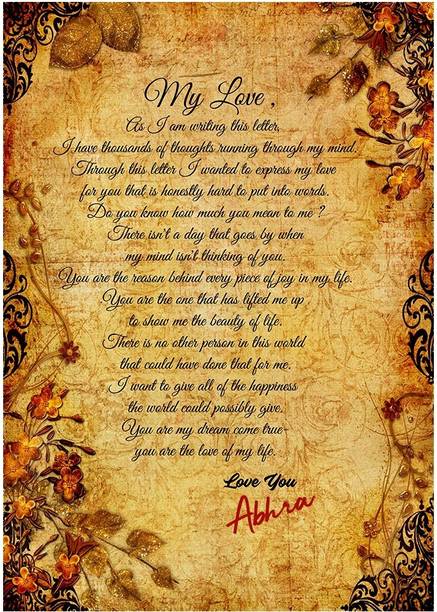 My Love ,
As I am writing this letter,
I have thousands of thoughts running through my mind.
Through this letter I wanted to express my love
for you that is honestly hard to put into words.
Do you know how much you mean to me ?
There isn't a day that goes by when
my mind isn't thinking of you.
You are the reason behind every piece of joy in my life.
You are the one that has lifted me up
to show me the beauty of life.
There is no other person in this world
that could have done that for me.
I want to give all of the happiness
the world could possibly give.
You are my dream come true-
you are the love of my life.
Love You
Abhra